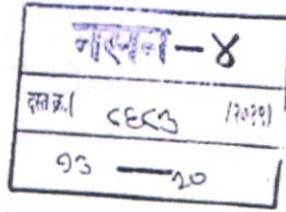 नसन - ४
दस्त क्र.( ८६८३ /२०२१)
१३ — २०